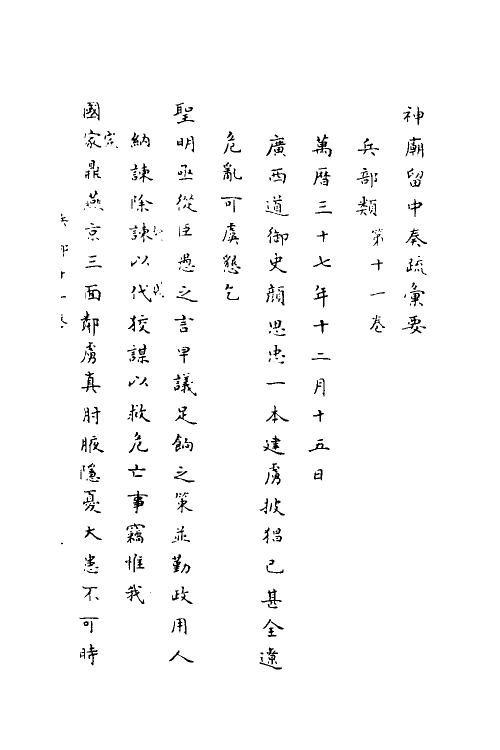 神廟留中奏疏彙要
兵部類第十一卷
萬曆三十七年十二月十五日
廣西道御史顏思忠一本建虜披猖已甚全遼
危亂可虞懇乞
聖明亟從臣愚之言早議足餉之策並勤政用人
納諫除諫以代狡謀以救危亡事竊惟我
國家鼎燕京三面鄰虜真肘腋隱憂大患不可時
兵部十一卷